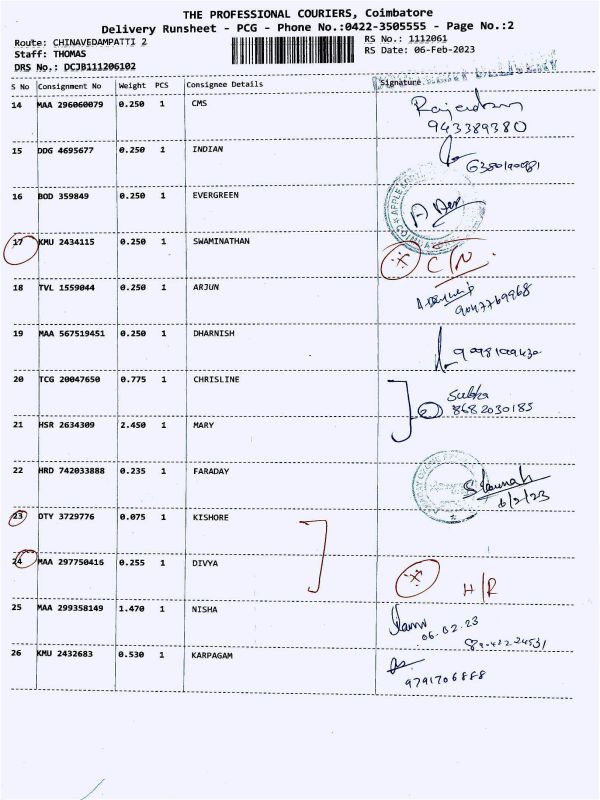 THE PROFESSIONAL COURIERS, Coimbatore
Delivery Runsheet - PCG - Phone No.:0422-3505555 - Page No.:2
Route: CHINAVEDAMPATTI 2 RS No.: 1112061
Staff: THOMAS RS Date: 06-Feb-2023
DRS No.: DCJB111206102
S No Consignment No Weight PCS Consignee Details Signature
14 MAA 296060079 0.250 1 CMS
943389380
15 DDG 4695677 0.250 1 INDIAN
16 BOD 359849 0.250 1 EVERGREEN
17 KMU 2434115 0.250 1 SWAMINATHAN C/N
18 TVL 1559044 0.250 1 ARJUN
9047769968
19 MAA 567519451 0.250 1 DHARNISH
20 TCG 20047650 0.775 1 CHRISLINE
8682030185
21 HSR 2634309 2.450 1 MARY
22 HRD 742033888 0.235 1 FARADAY
6/2/23
23 OTY 3729776 0.075 1 KISHORE
24 MAA 297750416 0.255 1 DIVYA
H/R
25 MAA 299358149 1.470 1 NISHA
06.02.23
26 KMU 2432683 0.530 1 KARPAGAM
9791706888